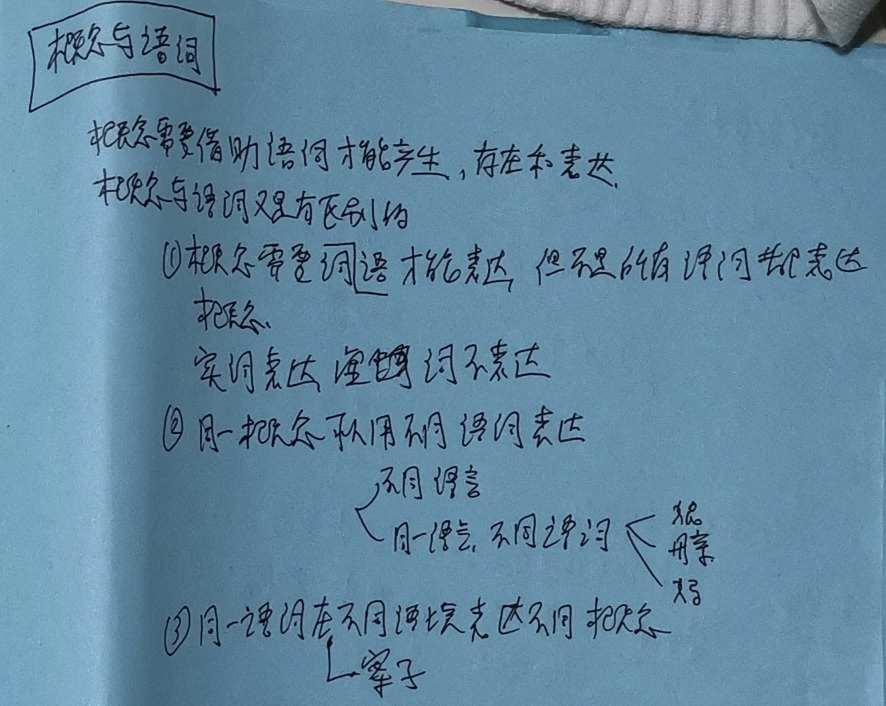 概念与语词
概念需要借助语词才能产生,存在和表达.
概念与语词又是有区别的
①概念需要词语才能表达,但不是所有语词都表达
概念.
实词表达,虚词不表达
②同一概念可以用不同语词表达
不同语言
同一语言,不同语词
③同一语词在不同语境表达不同概念
案子